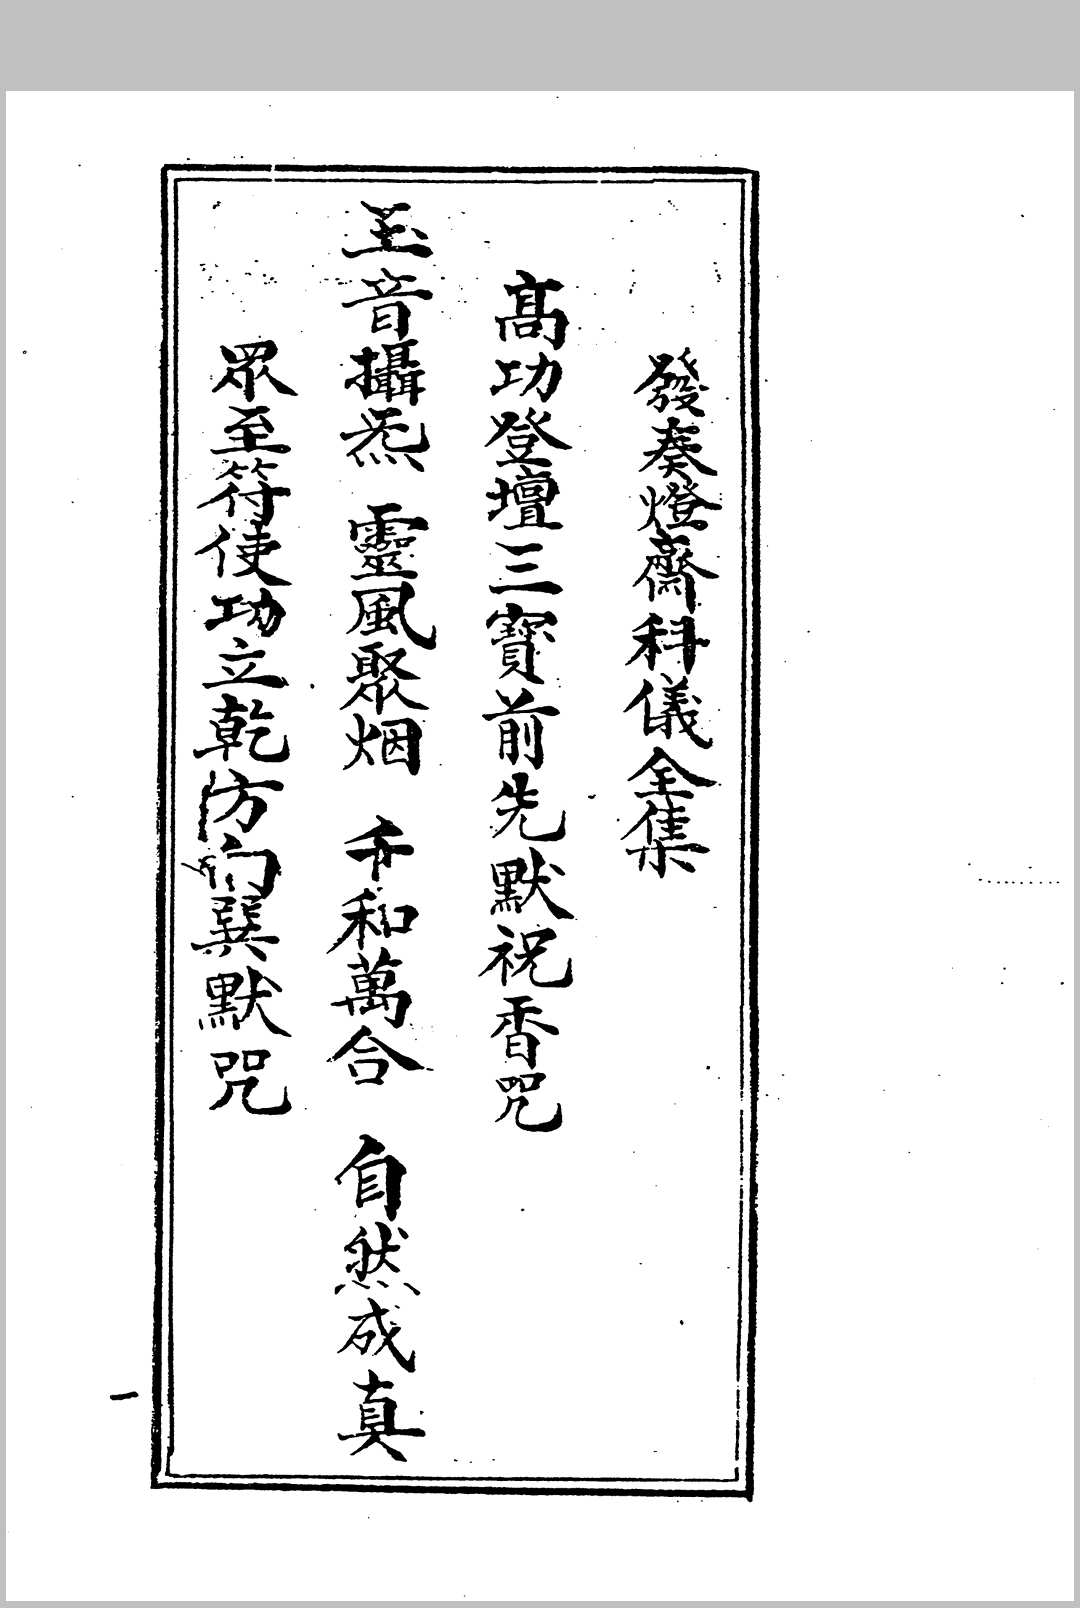 發奏燈齋科儀全集
高功登壇三寶前先默祝香咒
玉音攝炁 靈風聚烟 千和萬合 自然成真
眾至符使功立乾方向巽默咒
一